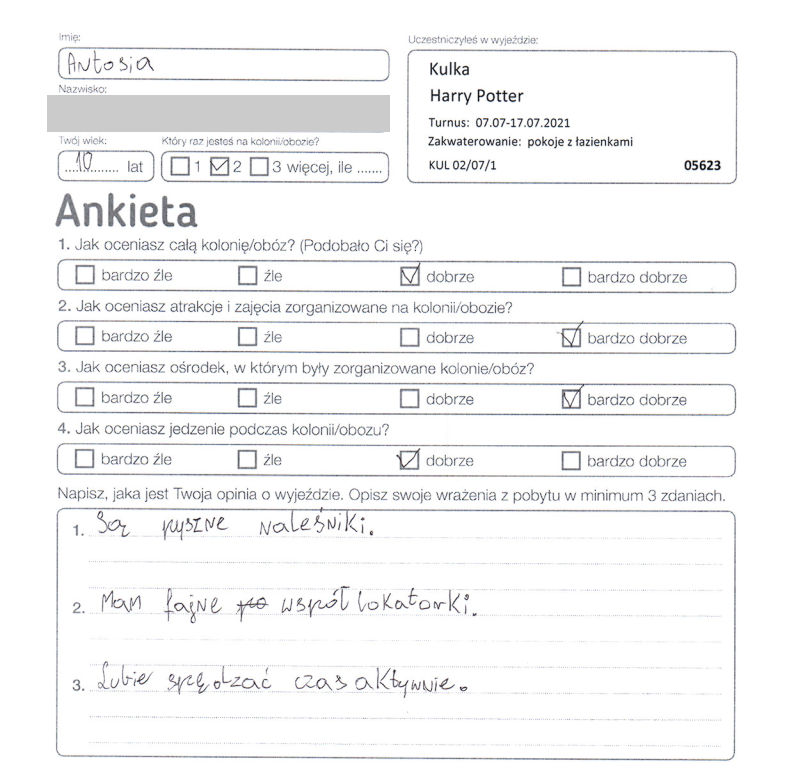 Imię:
Antosia
Nazwisko:
Twój wiek:
10 lat
Który raz jesteś na kolonii/obozie?
1 2 3 więcej, ile .......
Uczestniczyłeś w wyjeździe:
Kulka
Harry Potter
Turnus: 07.07-17.07.2021
Zakwaterowanie: pokoje z łazienkami
KUL 02/07/1 05623
Ankieta
1. Jak oceniasz całą kolonię/obóz? (Podobało Ci się?)
bardzo źle źle dobrze bardzo dobrze
2. Jak oceniasz atrakcje i zajęcia zorganizowane na kolonii/obozie?
bardzo źle źle dobrze bardzo dobrze
3. Jak oceniasz ośrodek, w którym były zorganizowane kolonie/obóz?
bardzo źle źle dobrze bardzo dobrze
4. Jak oceniasz jedzenie podczas kolonii/obozu?
bardzo źle źle dobrze bardzo dobrze
Napisz, jaka jest Twoja opinia o wyjeździe. Opisz swoje wrażenia z pobytu w minimum 3 zdaniach.
1. Są pyszne naleśniki.
2. Mam fajne współlokatorki.
3. Lubie spędzać czas aktywnie.